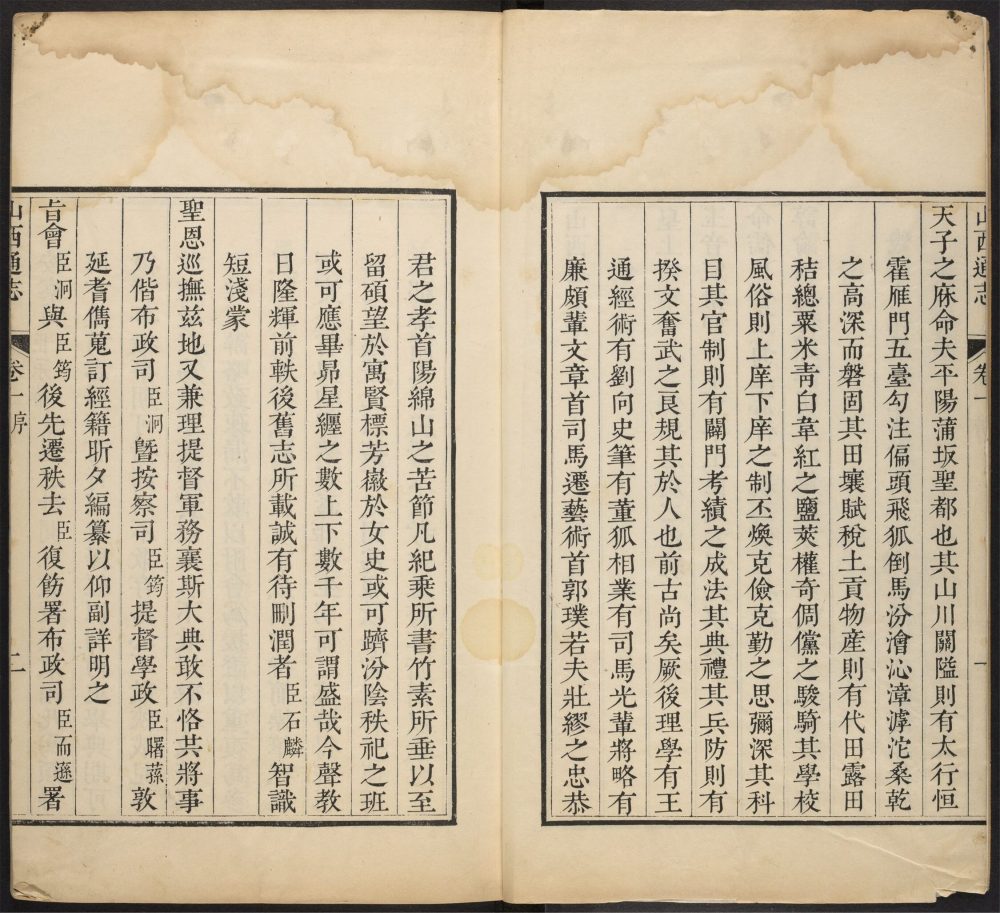 山西通志 卷一 一
天子之庥命夫平陽蒲坂聖都也其山川關隘則有太行恒
霍雁門五臺勾注偏頭飛狐倒馬汾澮沁漳滹沱桑乾
之高深而磐固其田壤賦稅土貢物産則有代田露田
秸總粟米青白韋紅之鹽莢權奇倜儻之駿騎其學校
風俗則上庠下庠之制丕煥克儉克勤之思彌深其科
目其官制則有闢門考績之成法其典禮其兵防則有
揆文奮武之良規其於人也前古尚矣厥後理學有王
通經術有劉向史筆有董狐相業有司馬光輩將略有
廉頗輩文章首司馬遷藝術首郭璞若夫壯繆之忠恭
君之孝首陽綿山之苦節凡紀乘所書竹素所垂以至
留碩望於寓賢標芳徽於女史或可躋汾陰秩祀之班
或可應畢昴星纏之數上下數千年可謂盛哉今聲教
日隆輝前軼後舊志所載誠有待刪潤者臣石麟智識
短淺蒙
聖恩巡撫兹地又兼理提督軍務襄斯大典敢不恪共將事
乃偕布政司臣泂暨按察司臣筠提督學政臣曙蓀敦
延耆儁蒐訂經籍昕夕編纂以仰副詳明之
旨會臣泂與臣筠後先遷秩去臣復飭署布政司臣而遜署
山西通志 卷一序 二